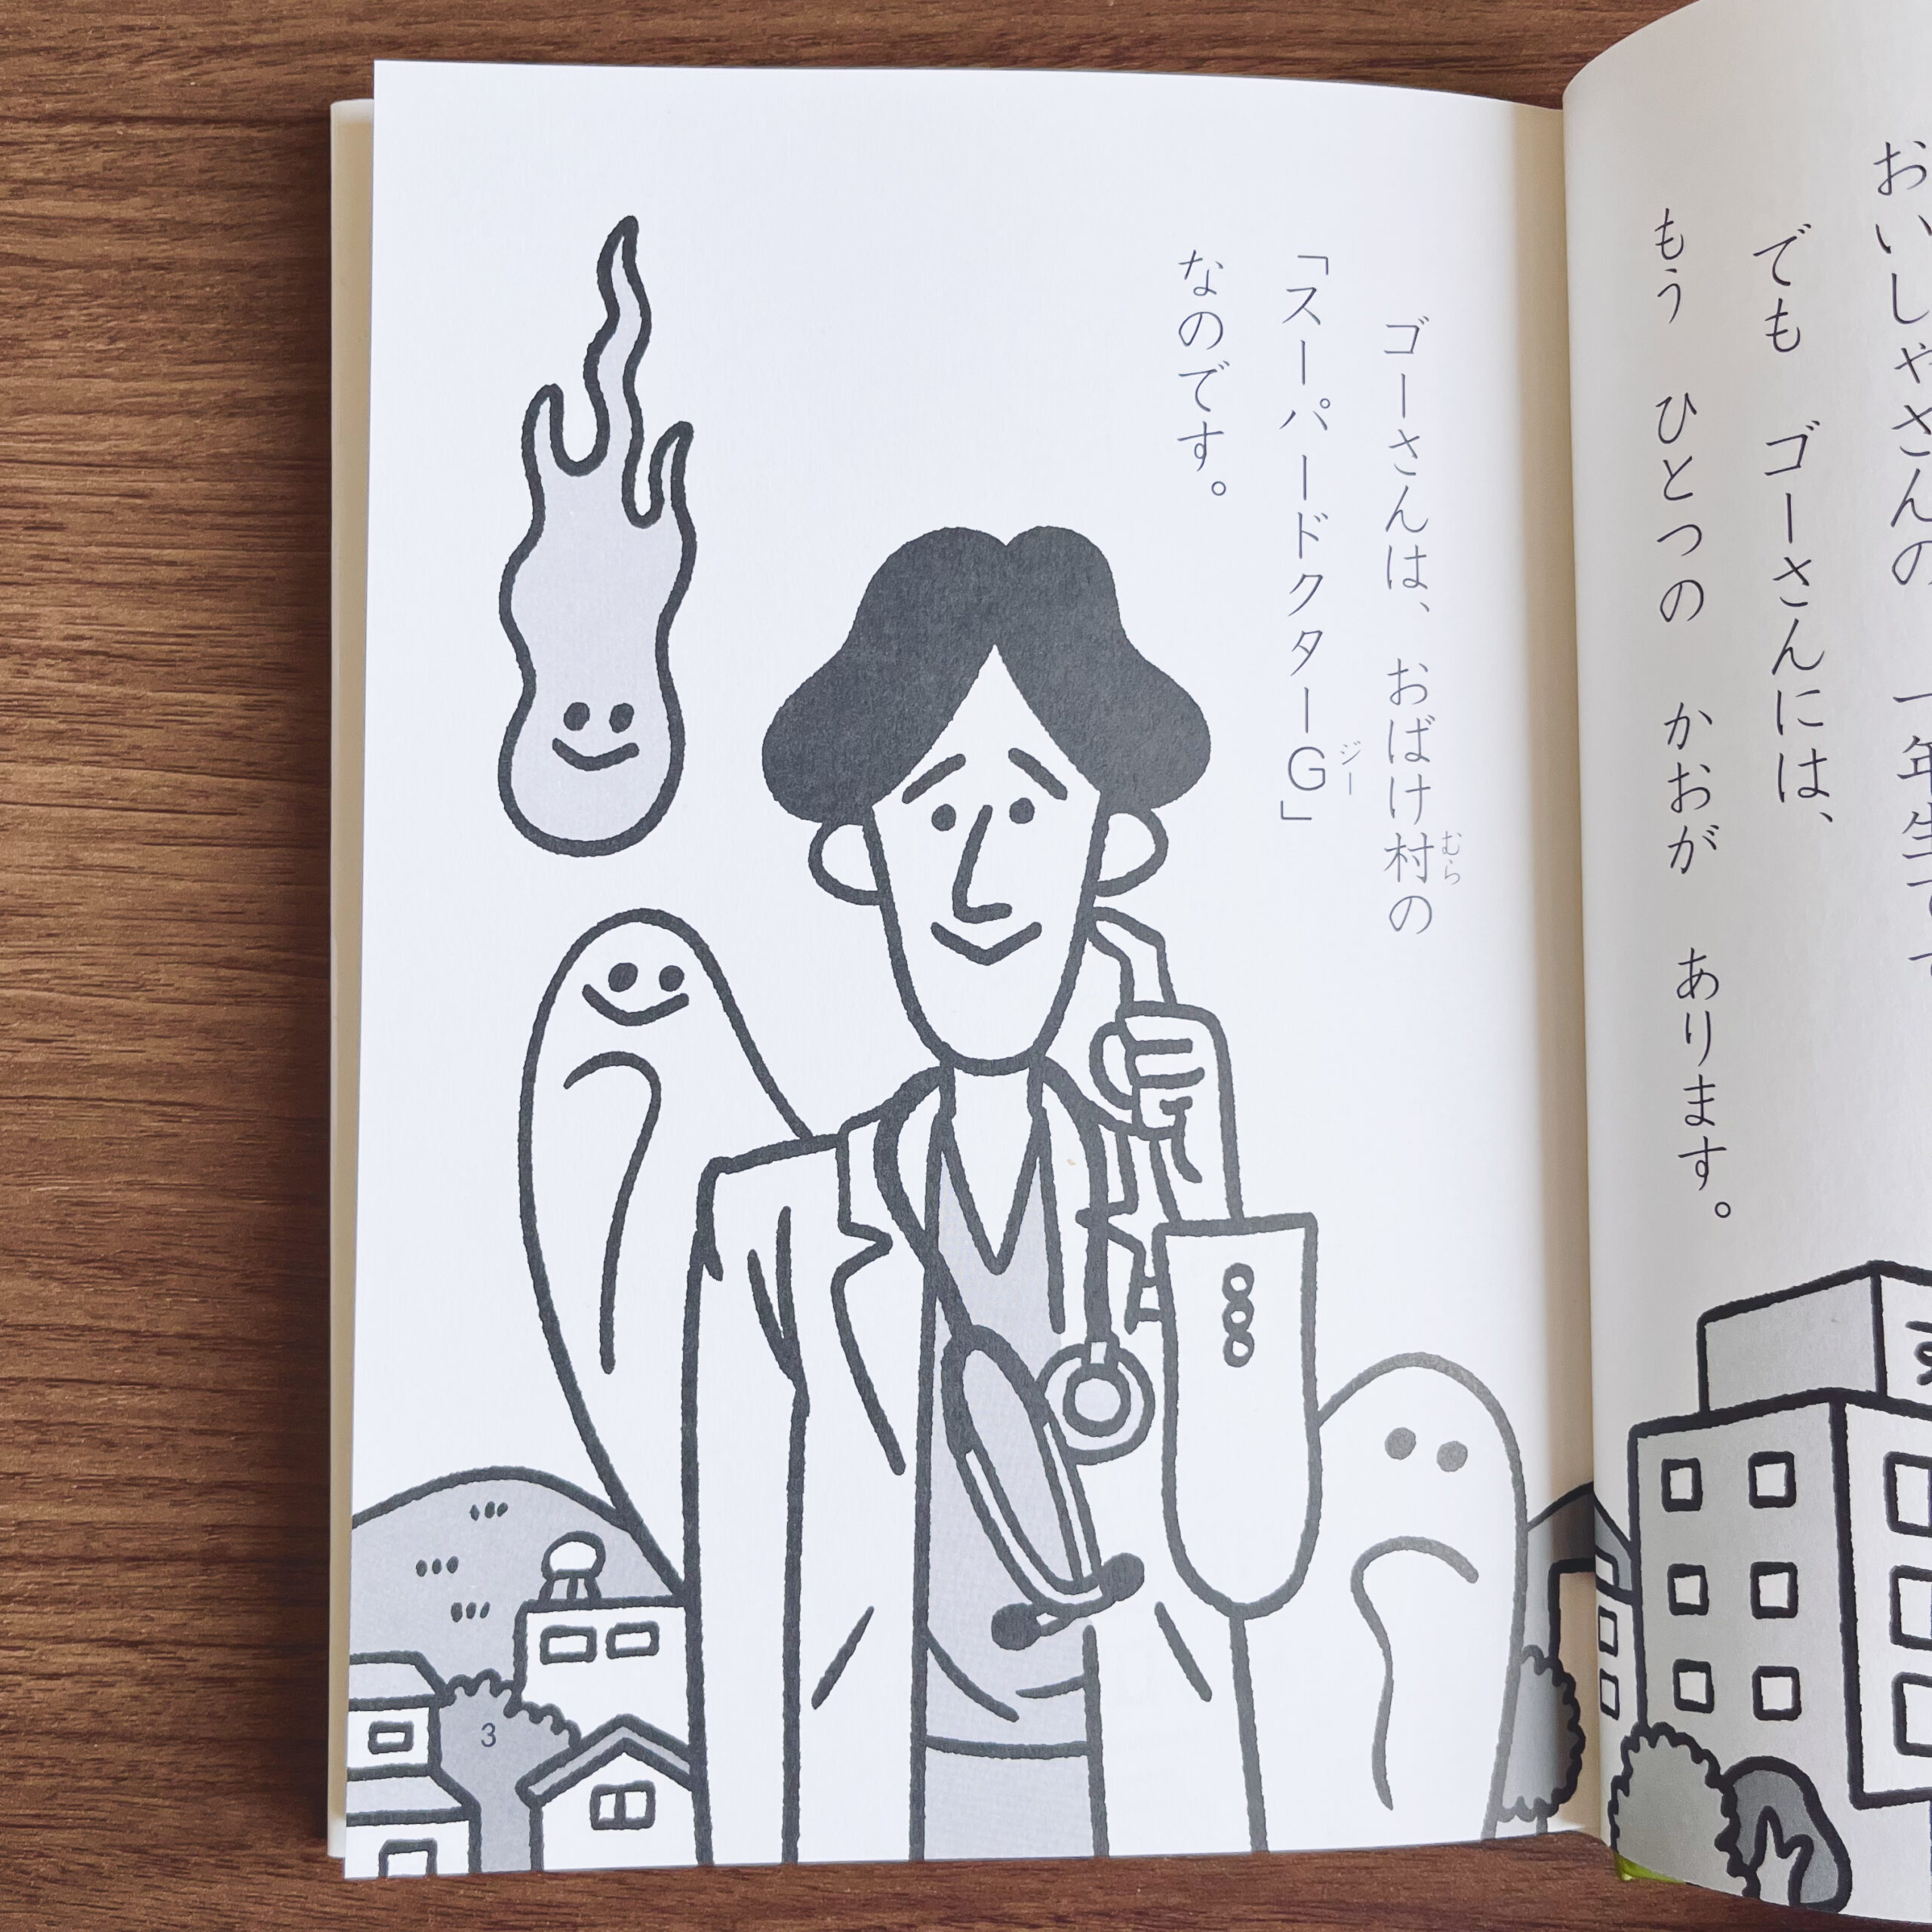 おいしゃさんの 一年生で
でも ゴーさんには、
もう ひとつの かおが あります。
ゴーさんは、 おばけ村の
むら
「スーパードクターG」
ジー
なのです。
3